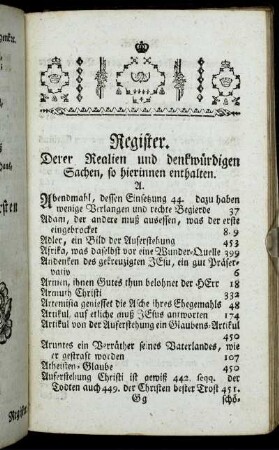 Register.
Derer Realien und denkwürdigen
Sachen, so hierinnen enthalten.
A.
Abendmahl, dessen Einsetzung 44. dazu haben
wenige Verlangen und rechte Begierde 37
Adam, der andere muß aussessen, was der erste
eingebrocket 8. 9
Adler, ein Bild der Auferstehung 453
Africa, was daselbst vor eine Wunder-Quelle 399
Andenken des gekreuzigten JEsu, ein gut Präser-
vativ 6
Armen, ihnen Gutes thun belohnet der HErr 18
Armuth Christi 332
Artemisia geniesset die Asche ihres Ehegemahls 48
Artikul, auf etliche muß JEsus antworten 174
Artikul von der Auferstehung ein Glaubens-Artikul
450
Aruntes ein Verräther seines Vaterlandes, wie
er gestraft worden 107
Atheisten-Glaube 450
Auferstehung Christi ist gewiß 442. seqq. der
Todten auch 449. der Christen bester Trost 451.
Gg schö-
Regis